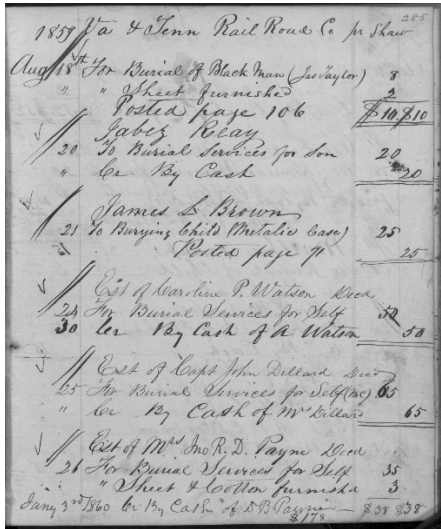 285
1859 Va & Tenn Rail Road Co pr Shaw
Aug 18th For Burial of Black Man (Jas Taylor) 8
" " Sheet furnished 2
Posted page 106 $10 $10
Jabez Reay
20 To Burial Services for Son 20
" Cr By Cash 20
James L Brown
21 To Burying Child (Metalic Case) 25
Posted page 91 25
Est of Caroline P. Watson Decd
24 For Burial Services for Self 50
30 Cr By Cash of A Watson 50
Est of Capt John Dillard Decd
25 For Burial Services for Self (mc) 65
" Cr By Cash of Mr Dillard 65
Est of Mrs Jno R. D. Payne Decd
26 For Burial Services for Self 35
" " Sheet & Cotton furnishd 3
Jany 3rd 1860 Cr By Cash of D B Payne — $38 $38
$178